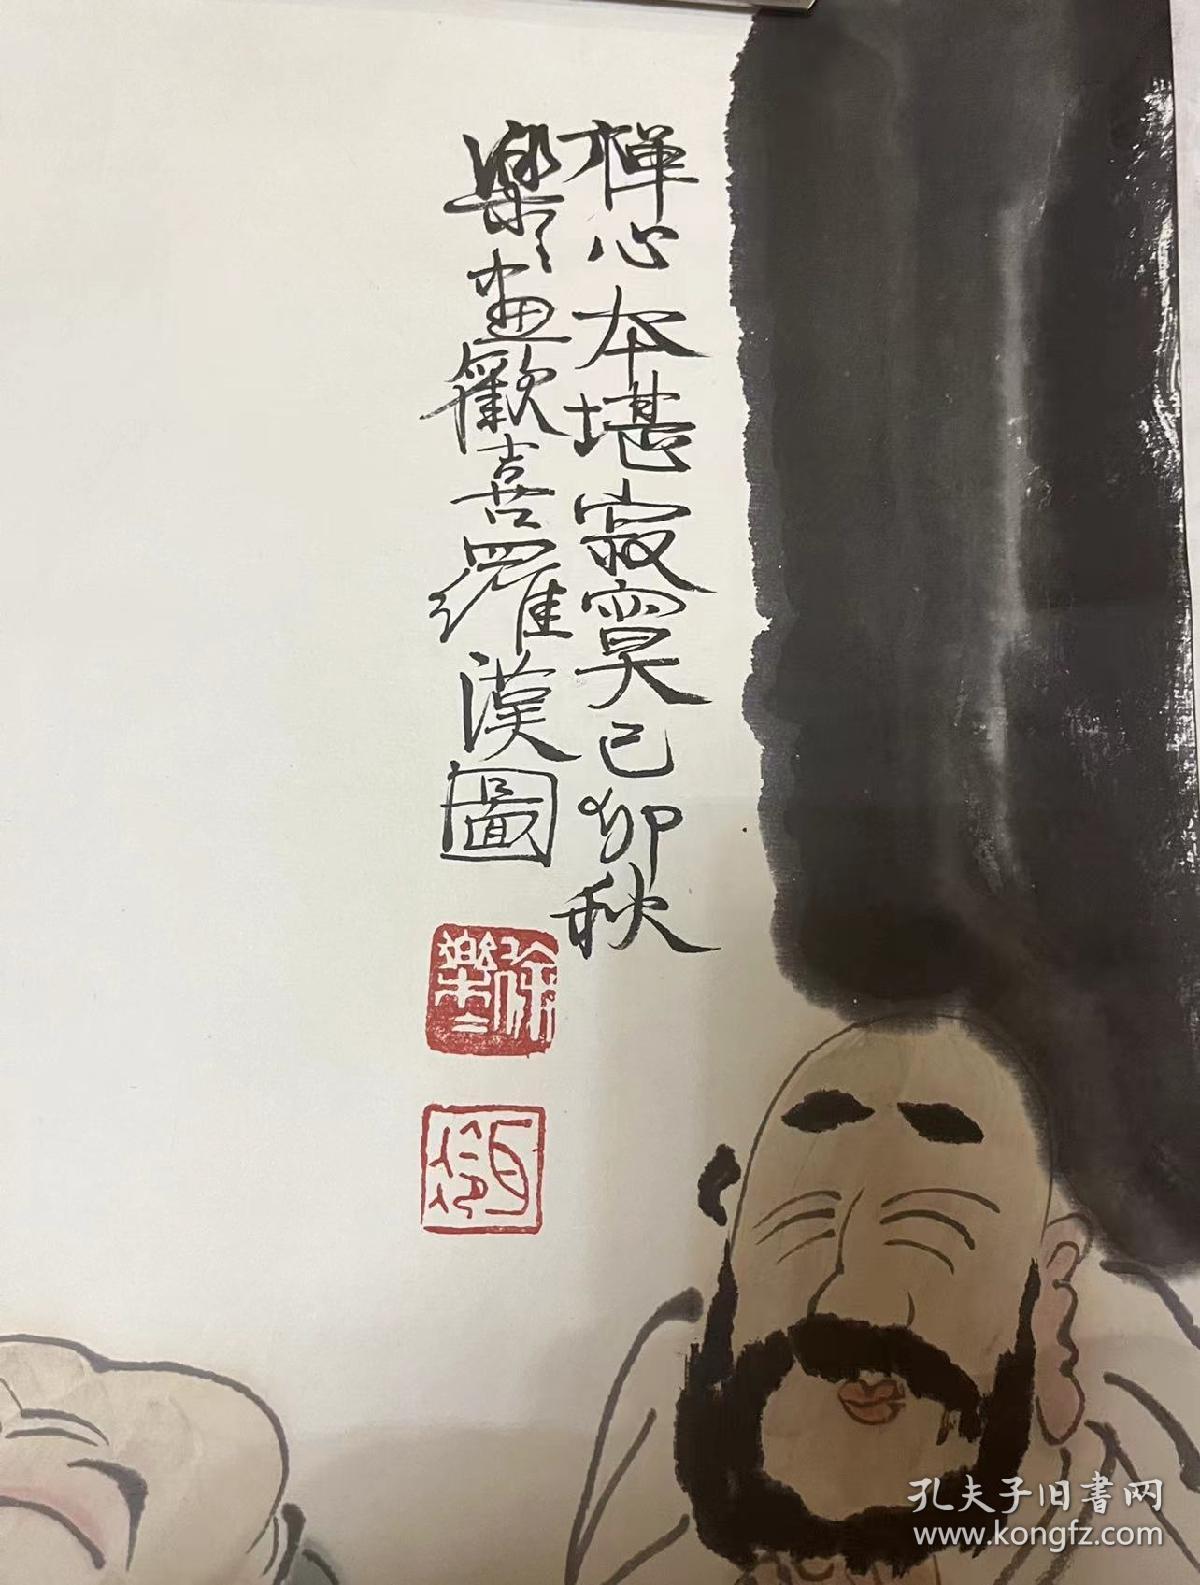 禅心本堪寂寞己卯秋
樂樂畫歡喜羅漢圖
徐樂樂
孔夫子旧書网
www.kongfz.com